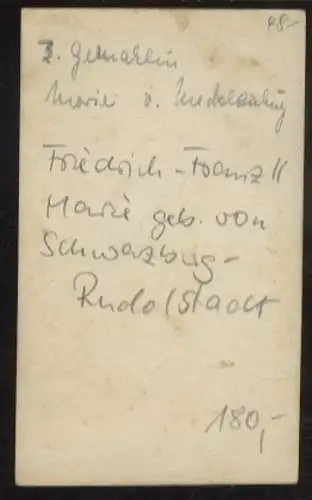 48.-
3. Gemahlin
Marie v. Mecklenburg
Friedrich-Franz II
Marie geb. von
Schwarzburg-
Rudolstadt
180,-